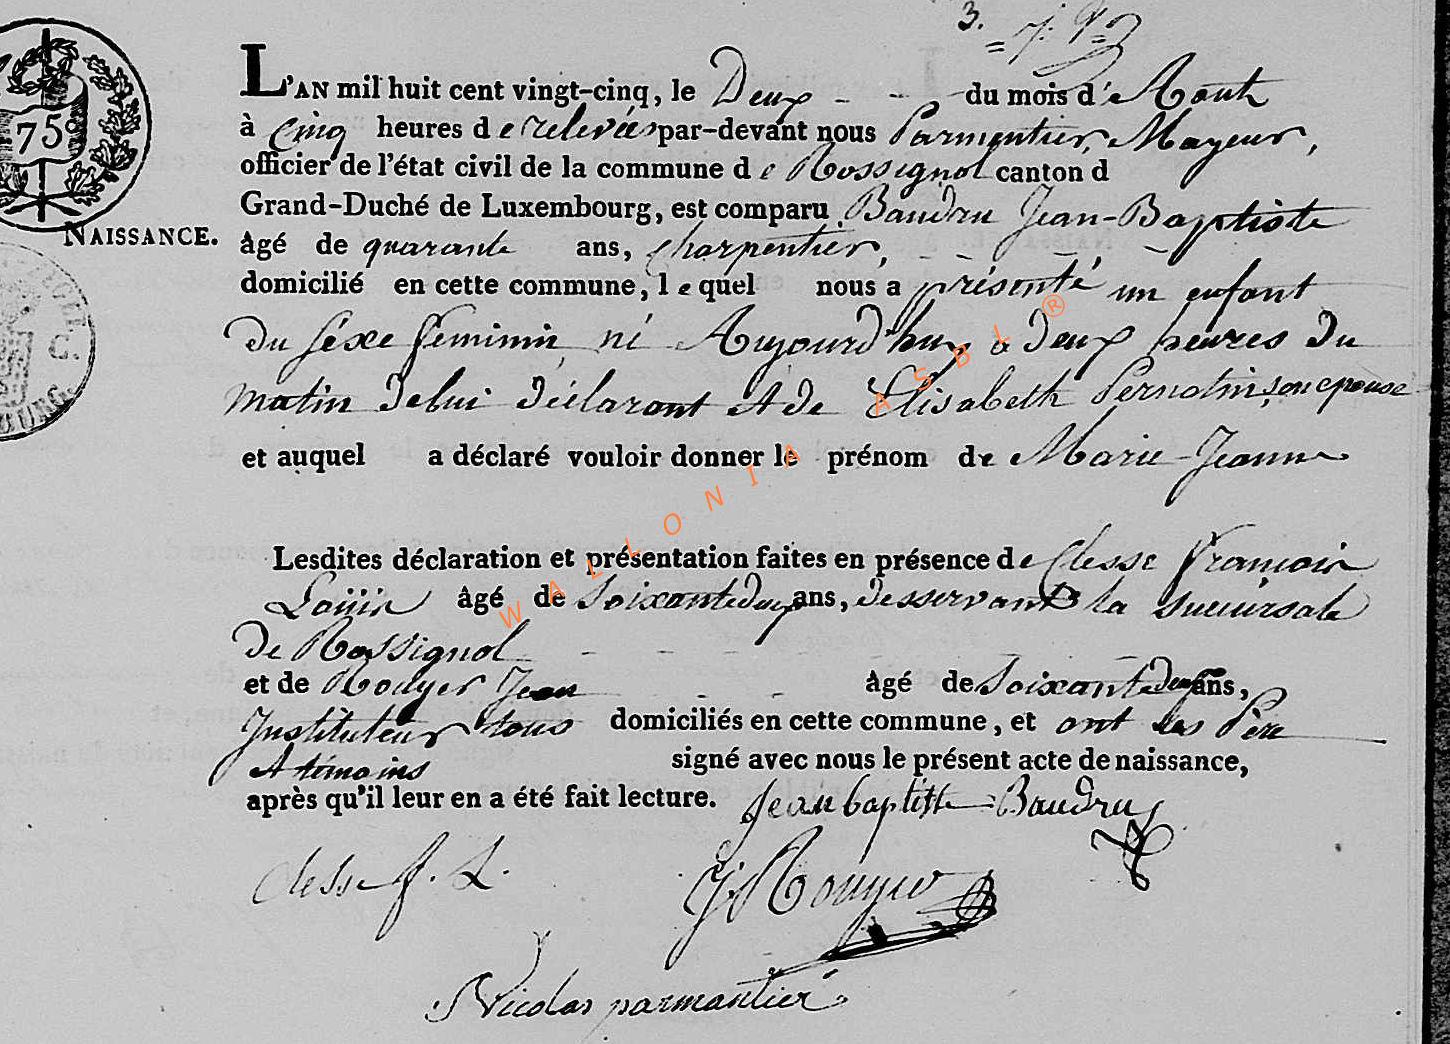 3.
75c
L'AN mil huit cent vingt-cinq, le Deux - - du mois d'e Aout
à cinq heures de relevées par-devant nous Parmentier, Mayeur,
officier de l'état civil de la commune de Rossignol canton d
Grand-Duché de Luxembourg, est comparu Baudru Jean-Baptiste
NAISSANCE.
âgé de quarante ans, charpentier, - - -
domicilié en cette commune, lequel nous a présenté un enfant
du séxe féminin, né Aujourd'huy a deux heures du
matin de lui déclarant et de Elisabeth Pernotin, son epouse
et auquel a déclaré vouloir donner le prénom de Marie-Jeanne
Lesdites déclaration et présentation faites en présence de Clesse François
Loüis âgé de Soixante deux ans, desservant la succursale
de Rossignol - - - -
et de Rougér Jean - - âgé de Soixante deux ans,
Instituteur tous domiciliés en cette commune, et ont les Père
et témoins signé avec nous le présent acte de naissance,
après qu'il leur en a été fait lecture. Jean baptiste Baudru
Clesse f. L.
J Rouyer
Nicolas parmantier
WALLONIA ASBL ®